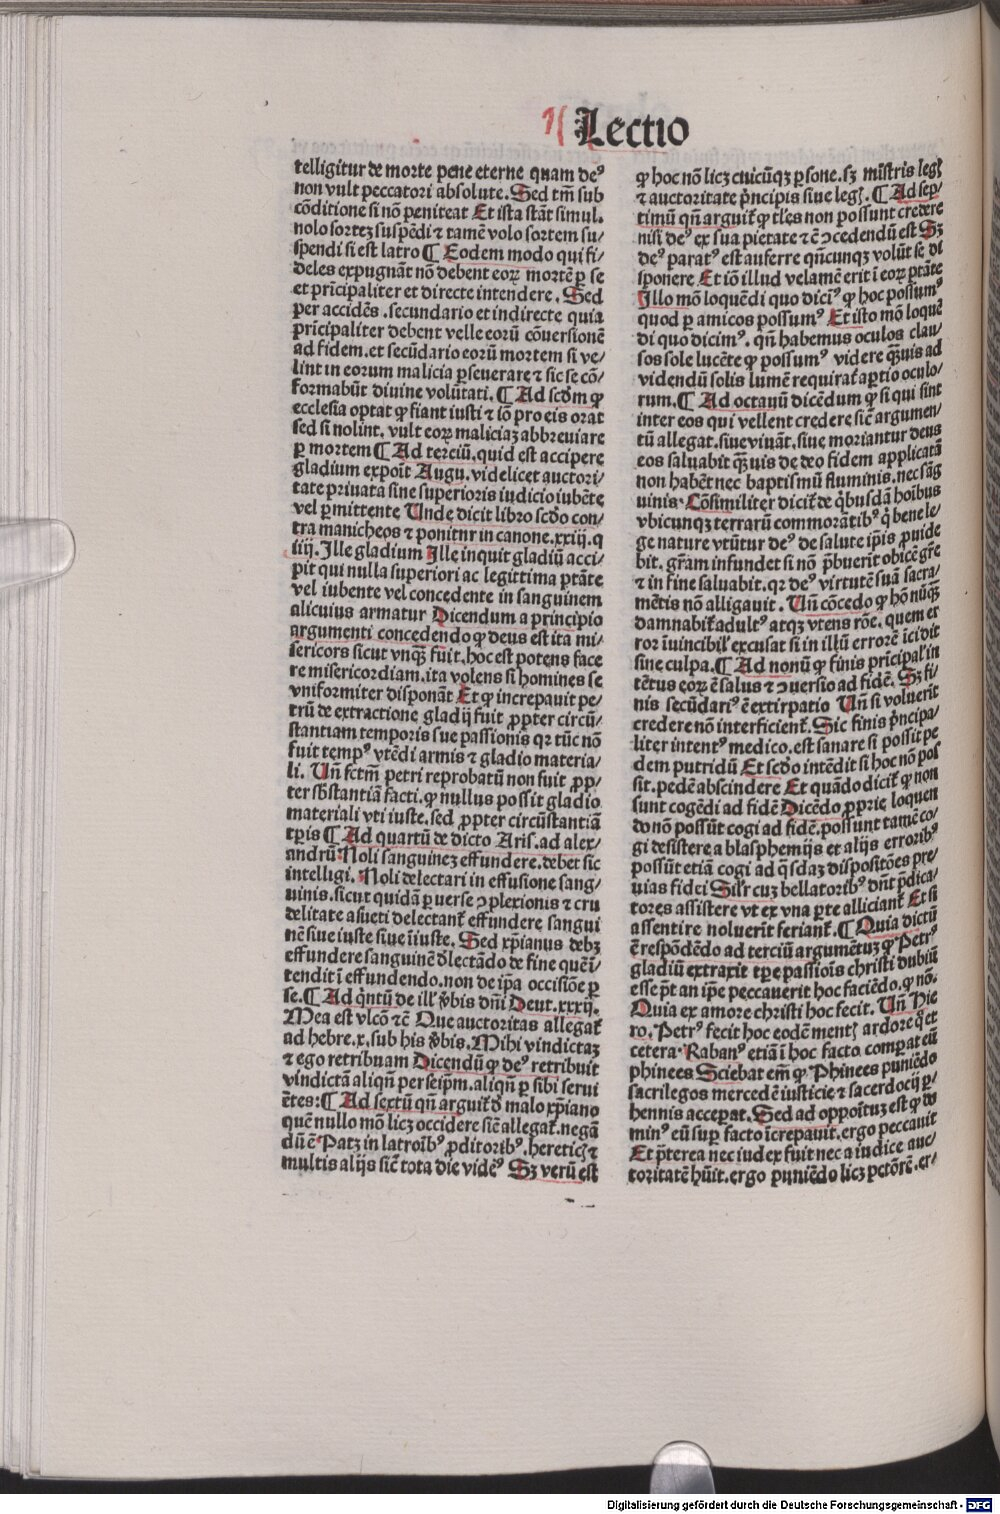 Lectio
telligitur de morte pene eterne quam de⁹
non vult peccatori absolute. Sed tm̄ sub
cōditione si nō peniteat Et ista stāt simul.
nolo sortez suspēdi ⁊ tamē volo sortem su/
spendi si est latro ¶ Eodem modo qui fi/
deles expugnāt nō debent eoꝝ mortē ꝑ se
et prīcipaliter et directe intendere. Sed
per accidēs .secundario et indirecte quia
prīcipaliter debent velle eorū cōuersionē
ad fidem. et secūdario eorū mortem si ve/
lint in eorum malicia ꝑseuerare ⁊ sic se cō/
formabūt diuine volūtati. ¶ Ad scd̄m ꝙ
ecclesia optat ꝙ fiant iusti ⁊ iō pro eis orat
sed si nolint. vult eoꝝ maliciaꝫ abbreuiare
ꝑ mortem ¶ Ad terciū. quid est accipere
gladium expoīt Augu. videlicet auctori/
tate priuata sine superioris iudicio iubēte
vel ꝑmittente Unde dicit libro scd̄o con/
tra manicheos ⁊ ponitur in canone. xxiij. q
iiij. Ille gladium Ille inquit gladiū acci/
pit qui nulla superiori ac legittima ptāte
vel iubente vel concedente in sanguinem
alicuius armatur Dicendum a principio
argumenti concedendo ꝙ deus est ita mi/
sericors sicut vnqꝫ fuit. hoc est potens face
re misericordiam. ita volens si homines se
vniformiter disponāt Et ꝙ increpauit pe/
trū de extractione gladij fuit ꝓpter circū/
stantiam temporis sue passionis qꝛ tūc nō
fuit temp⁹ vtēdi armis ⁊ gladio materia/
li. Un̄ fctm̄ petri reprobatū non fuit ꝓp/
ter sb̄stantiā facti. ꝙ nullus possit gladio
materiali vti iuste. sed ꝓpter circūstantiā
tꝑis ¶ Ad quartū de dicto Aris. ad alex/
andrū Noli sanguineꝫ effundere. debet sic
intelligi. Noli delectari in effusione sang/
uinis. sicut quidā ꝑuerse ↄplexionis ⁊ cru
delitate asueti delectant᷑ effundere sangui
nē siue iuste siue īiuste. Sed xp̄ianus debꝫ
effundere sanguinē dlectādo de fine quē ī/
tendit ī effundendo. non de ip̄a occisiōe ꝑ
se. ¶ Ad qn̄tū de ill' v̄bis dn̄i Deut. xxxij.
Mea est vlcō ⁊c̄ Que auctoritas allegat᷑
ad hebre. x. sub his v̄bis. Mihi vindictaꝫ
⁊ ego retribuam Dicendū ꝙ de⁹ retribuit
vindictā aliqn̄ per seip̄m. aliqn̄ ꝑ sibi serui
ētes: ¶ Ad sextū qn̄ arguit᷑ d̄ malo xp̄iano
quē nullo mō licꝫ occidere siē allegat᷑. negā
dū ē Patꝫ in latroīb⁹ ꝓditorib⁹. hereticꝭ ⁊
multis alijs siē tota die vide⁹ Sꝫ verū est
ꝙ hoc nō licꝫ cuicūqꝫ ꝑsone. sꝫ mīstris legꝭ
⁊ auctoritate pͥncipis siue legꝭ. ¶ Ad sep/
timū qn̄ arguit᷑ ꝙ tl̄es non possunt credere
nisi de⁹ ex sua pietate ⁊c̄ ↄcedendū est Sꝫ
de⁹ parat⁹ est auferre qn̄cunqꝫ volūt se di
sponere Et iō illud velamē erit ī eoꝝ ptāte
Illo mō loquēdi quo dici⁹ ꝙ hoc possum⁹
quod ꝑ amicos possum⁹ Et isto mō loquē
di quo dicim⁹. qn̄ habemus oculos clau/
sos sole lucēte ꝙ possum⁹ videre qꝫuis ad
videndū solis lumē requirat᷑ aꝑtio oculo/
rum. ¶ Ad octauū dicēdum ꝙ si qui sint
inter eos qui vellent credere siē argumen/
tū allegat. siue viuāt. siue moriantur deus
eos saluabit qꝫuis de deo fidem applicatā
non habēt nec baptismū fluminis. nec sāg
uinis. Cōsimiliter dicit᷑ de qͥbusdā hoībus
vbicunqꝫ terrarū commorātib⁹ qͥ bene le/
ge nature vtūtur de⁹ de salute ip̄is ꝓuide
bit. gr̄am infundet si nō pͥbuerīt obicē gr̄e
⁊ in fine saluabit. qꝛ de⁹ virtutē suā sacra/
mētis nō alligauit. Un̄ cōcedo ꝙ hō nūqꝫ
damnabit᷑ adult⁹ atqꝫ vtens rōe. quem er
ror īuincibil' excusat si in illū errorē īcidit
sine culpa. ¶ Ad nonū ꝙ finis prīcipal' in
tētus eoꝝ ē salus ⁊ ↄuersio ad fidē. Sꝫ fi/
nis secūdari⁹ ē extirpatio Un̄ si voluerīt
credere nō interficient᷑. Sic finis pͥncipa/
liter intent⁹ medico. est sanare si possit pe
dem putridū Et scd̄o intēdit si hoc nō pos
sit. pedē abscindere Et quādo dicit᷑ ꝙ non
sunt cogēdi ad fidē Dicēdo ꝓprie loquen
do nō possūt cogi ad fidē. possunt tamē co/
gi desistere a blasphemijs et alijs errorib⁹
possūt etiā cogi ad qͣsdaꝫ dispositōes pre/
uias fidei Sil'r cuꝫ bellatorib⁹ dn̄t p̄dica/
tores assistere vt ex vna ꝑte alliciant᷑ Et si
assentire noluerīt feriant᷑. ¶ Quia dictū
ē respōdēdo ad terciū argumētuꝫ ꝙ Petr⁹
gladiū extraxit tꝑe passiōis christi dubiū
esse p̄t an ip̄e peccauerit hoc faciēdo. ꝙ nō.
Quia ex amore christi hoc fecit. Un̄ Hie
ro. Petr⁹ fecit hoc eodē mentꝭ ardore qͦ et
cetera. Raban⁹ etiā ī hoc facto comꝑat eū
phinees Sciebat em̄ ꝙ Phinees puniēdo
sacrilegos mercedē iusticie ⁊ sacerdocij ꝑ/
hennis acceꝑat. Sed ad oppoītuꝫ est ꝙ do
min⁹ eū suꝑ facto īcrepauit. ergo peccauit
Et p̄terea nec iudex fuit nec a iudice auc/
toritatē hūit. ergo puniēdo licꝫ pctōrē. er/
Digitalisierung gefördert durch die Deutsche Forschungsgemeinschaft - DFG